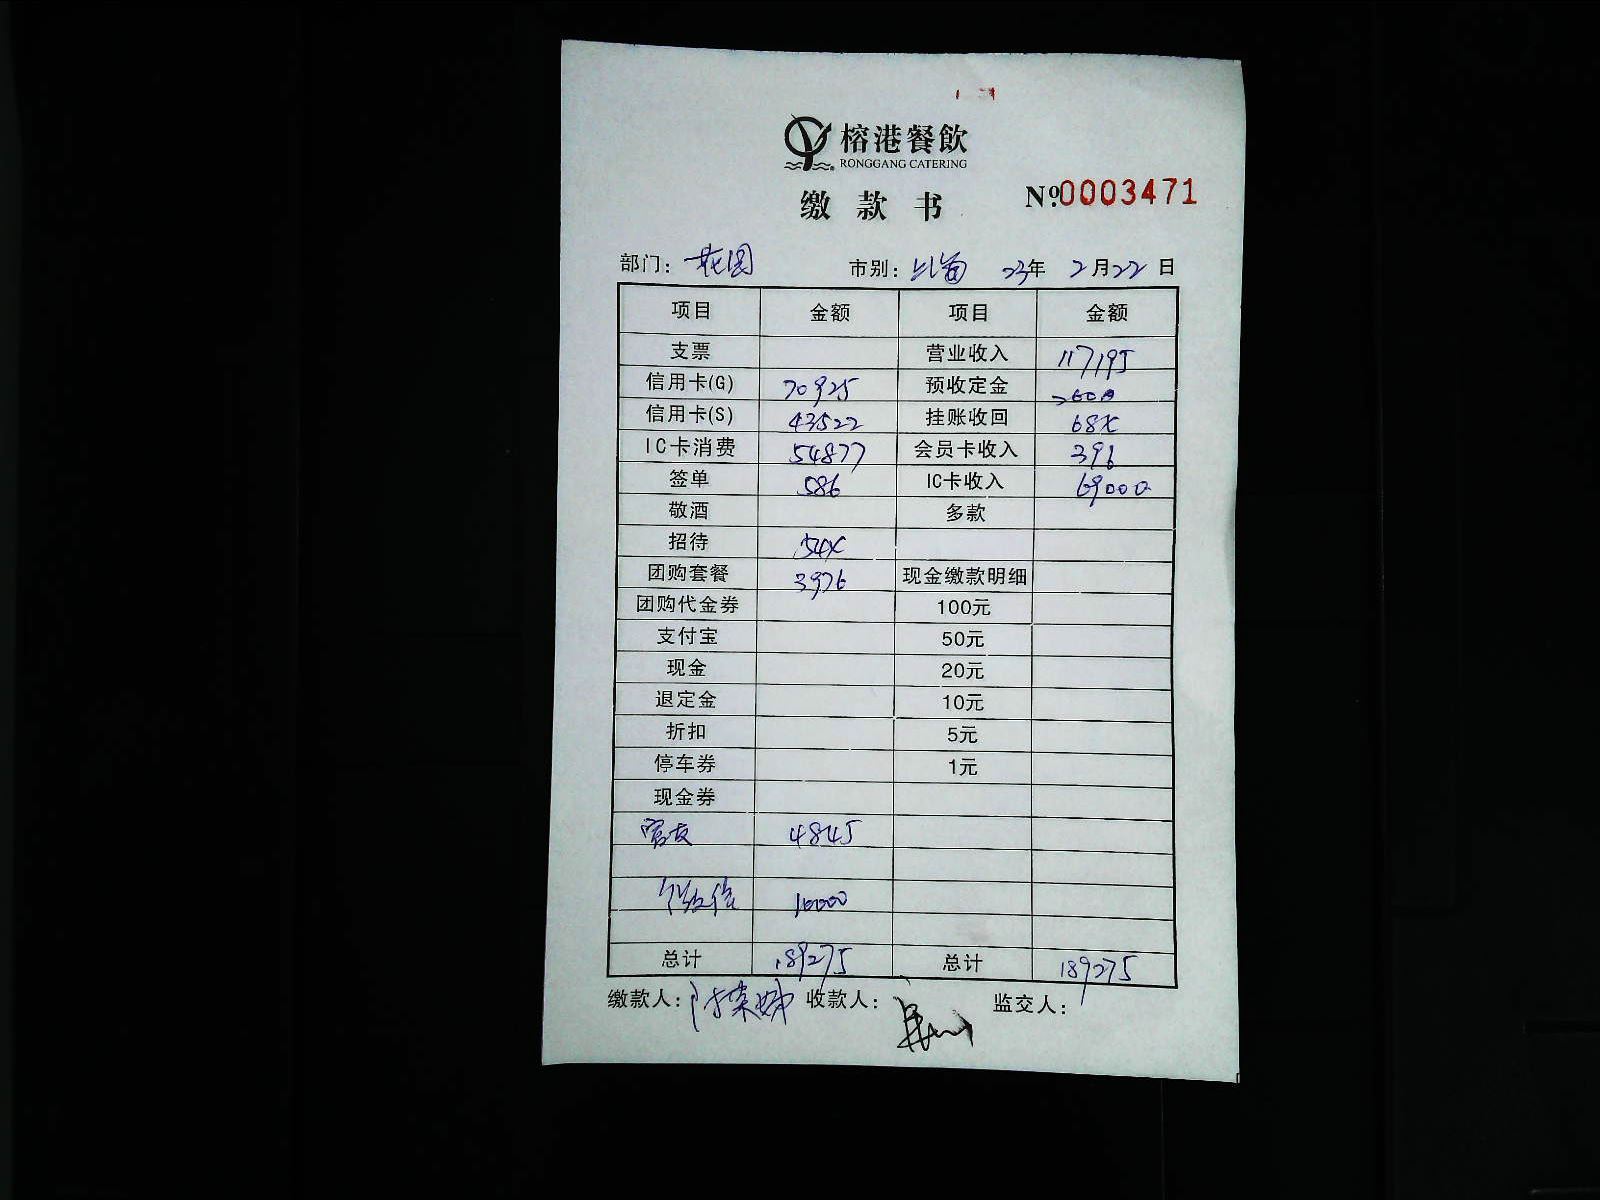 榕港餐飲
RONGGANG CATERING
缴款书 Nº.0003471
部门：花园 市别： 23年 2月22日
项目 金额 项目 金额
支票 营业收入 117195
信用卡(G) 70925 预收定金 2000
信用卡(S) 43522 挂账收回 684
IC卡消费 54877 会员卡收入 396
签单 586 IC卡收入 69000
敬酒 多款
招待 544
团购套餐 3976 现金缴款明细
团购代金券 100元
支付宝 50元
现金 20元
退定金 10元
折扣 5元
停车券 1元
现金券
4845
微信 10000
总计 189275 总计 189275
缴款人： 收款人： 监交人：